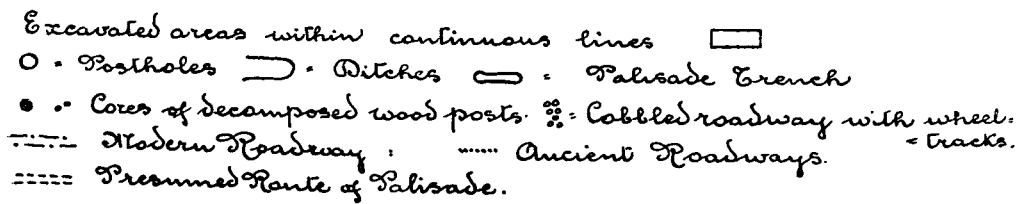 Excavated areas within continuous lines
= Postholes = Ditches = Palisade Trench
= Cores of decomposed wood posts. = Cobbled roadway with wheel=
= tracks.
Modern Roadway : Ancient Roadways.
Presumed Route of Palisade.